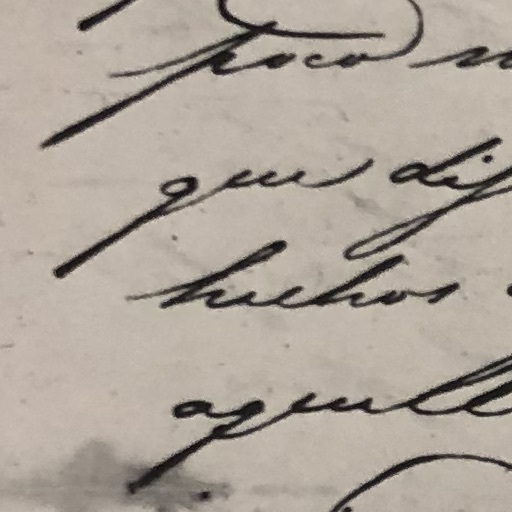 poco
que dif
hechos
aquell